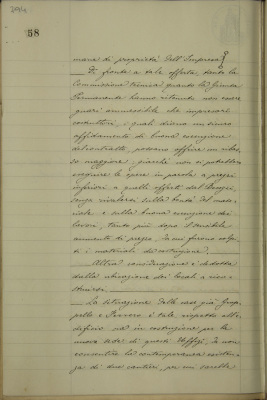 58
mane di proprietà dell'Impresa?
— Di fronte a tale offerta tanto la
Commissione tecnica quanto la Giunta
Permanente hanno ritenuto non essere
guari ammissibile che imprenditori
costruttori, i quali diano un sicuro
affidamento di buona esecuzione
del contratto, possano offrire un ribas-
so maggiore, giacchè non si potrebbero
eseguire le opere in parola a prezzi
inferiori a quelli offerti dal
senza rivalersi sulla bontà del mate-
riale e sulla buona esecuzione dei
lavori, tanto più dopo l'sensibile
aumento di prezzo, di cui furono colpi-
ti i materiali da costruzione.
— Altra considerazione è dedotta
dalla ubicazione dei locali a rico-
struirsi.
— La situazione delle case già
e è tale rispetto all'e-
dificio ora in costruzione per la
nuova sede di questi Uffizi, da non
consentire la contemporanea esisten-
za di due cantieri, per cui sarebbe